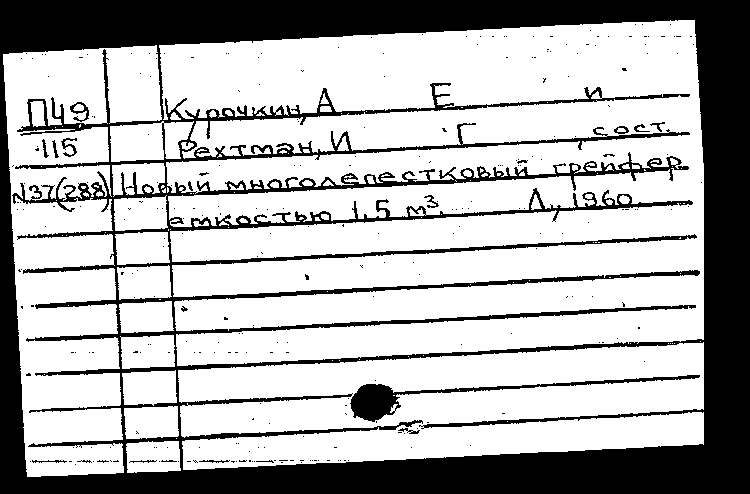 П49 Курочкин, А Е и
115 Рехтман, И Г , сост.
N37(288) Новый многолепестковый грейфер
емкостью 1,5 м³. Л., 1960